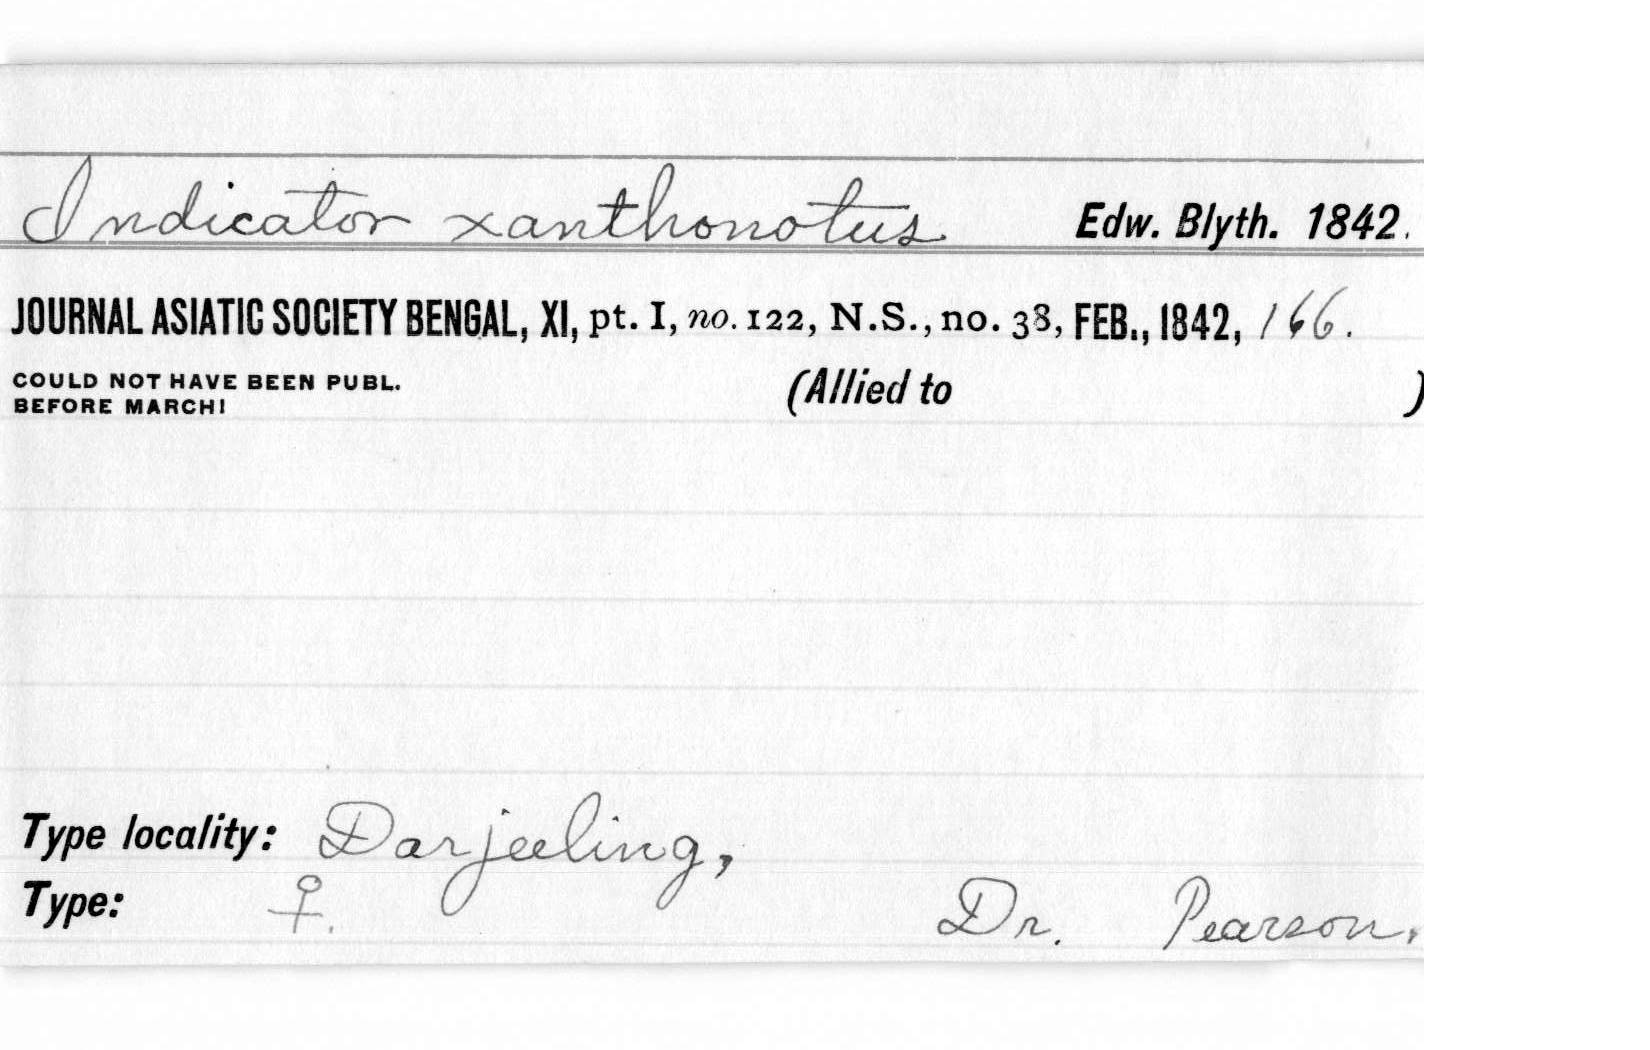 Indicator xanthonotus Edw. Blyth. 1842.
JOURNAL ASIATIC SOCIETY BENGAL, XI, pt. I, no. 122, N.S., no. 38, FEB., 1842, 166.
COULD NOT HAVE BEEN PUBL.
BEFORE MARCH!
(Allied to )
Type locality: Darjeeling,
Type: ♀. Dr. Pearson.